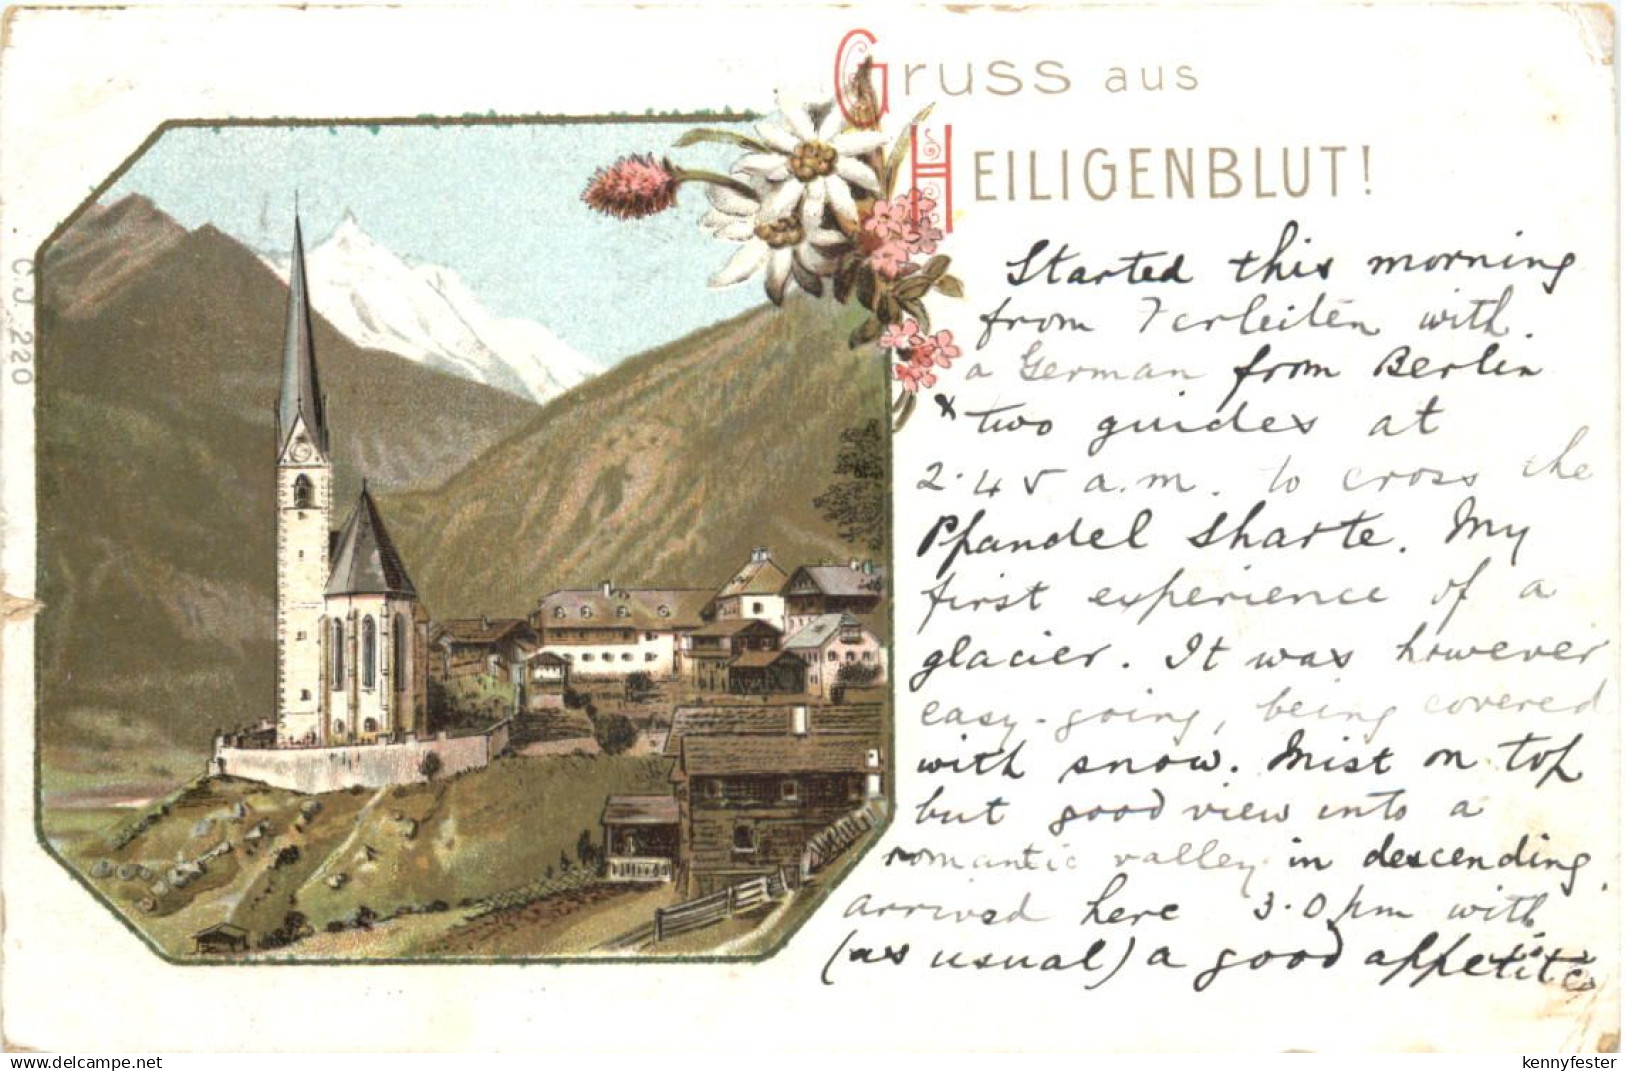 Gruss aus
HEILIGENBLUT!
C.J. 220
Started this morning
from Ferleiten with
a German from Berlin
& two guides at
2.45 a.m. to cross the
Pfandel Sharte. My
first experience of a
glacier. It was however
easy-going, being covered
with snow. Mist on top
but good view into a
romantic valley in descending
arrived here 3.0 pm with
(as usual) a good appetite
www.delcampe.net
kennyfester